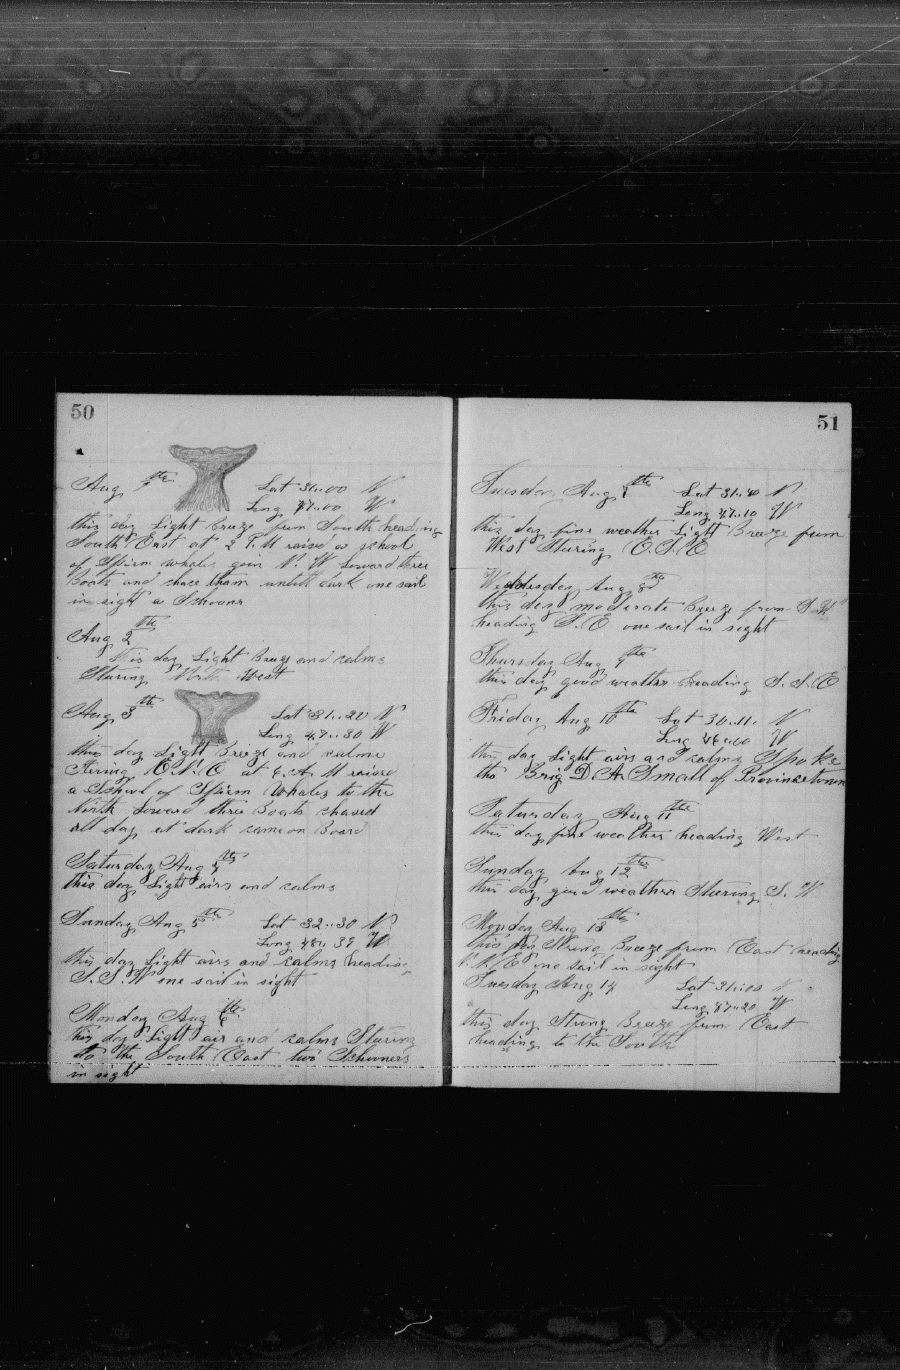 50
Aug 1th Lat 31..00 N
Long 47..00 W
this day Light Breeze from South heading
South East at 2 P.M raised a school
of Spirm whales goin N. W Loward three
Boats and chace them untill dark one sail
in sight a Schooner
Aug 2th
this day Light Breeze and calms
Sturing North West
Aug 3th Lat 31..20 N
Long 47..30 W
this day Light Breeze and calme
stering E.N.E at 6 A.M raised
a School of Spirm Whales to the
North Loward three Boats chased
all day at dark came on Board
Saturday Aug 4th
this day Light airs and calms
Sunday Aug 5th Lat 32..30 N
Long 48..39 W
this day Light airs and calms heading
S.S.W one sail in sight
Monday Aug 6th
this day Light air and calms Sturing
to the South East two Schooners
in sight
51
Tuesday Aug 7th Lat 31..40 N
Long 47..10 W
this day fine weather Light Breeze from
West Sturing E.S.E
Wednesday Aug 8th
this day moderate Breeze from S.W
heading S.E one sail in sight
Thursday Aug 9th
this day good weather heading S.S.E
Friday Aug 10th Lat 30..11. N
Long 46..00 W
this day Light airs and calms Spoke
the Brig D A Small of Provincetown
Saturday Aug 11th
this day fine weather heading West
Sunday Aug 12th
this day good weather Sturing S. W
Monday Aug 13th
this day Strong Breeze from East heading
N.N.E one sail in sight
Tuesday Aug 14 Lat 31..03 N
Long 47..20 W
this day Strong Breeze from East
heading to the South